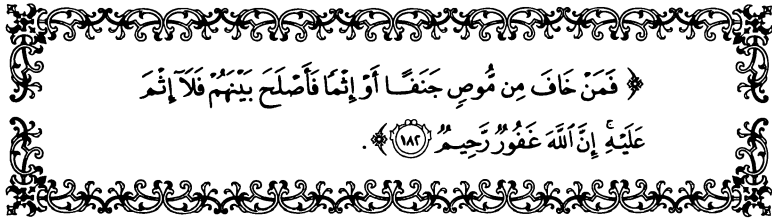 ﴿ فَمَنْ خَافَ مِن مُّوصٍ جَنَفًا أَوْ إِثْمًا فَأَصْلَحَ بَيْنَهُمْ فَلَآ إِثْمَ
عَلَيْهِ ۚ إِنَّ ٱللَّهَ غَفُورٌ رَّحِيمٌ ١٨٢ ﴾ .